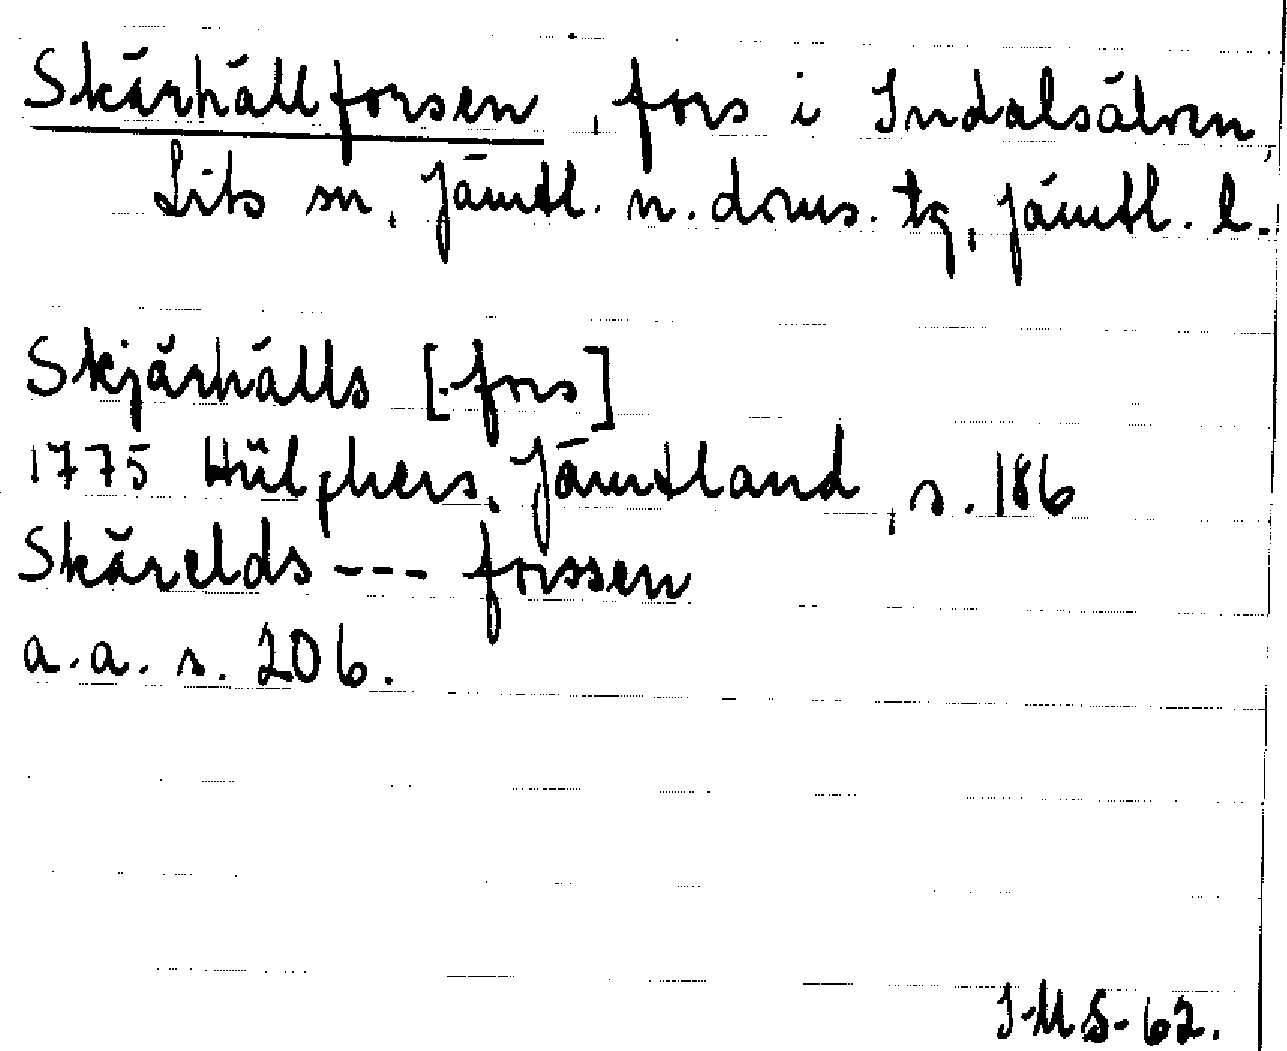 Skärhällforsen, fors i Indalsälven,
Lits sn, Jämtl. n. doms. tg, Jämtl. l.
Skjärhälls [-fors]
1775 Hülphers, Jämtland, s. 186
Skärelds --- forssen
a.a. s. 206.
I-MS-62.